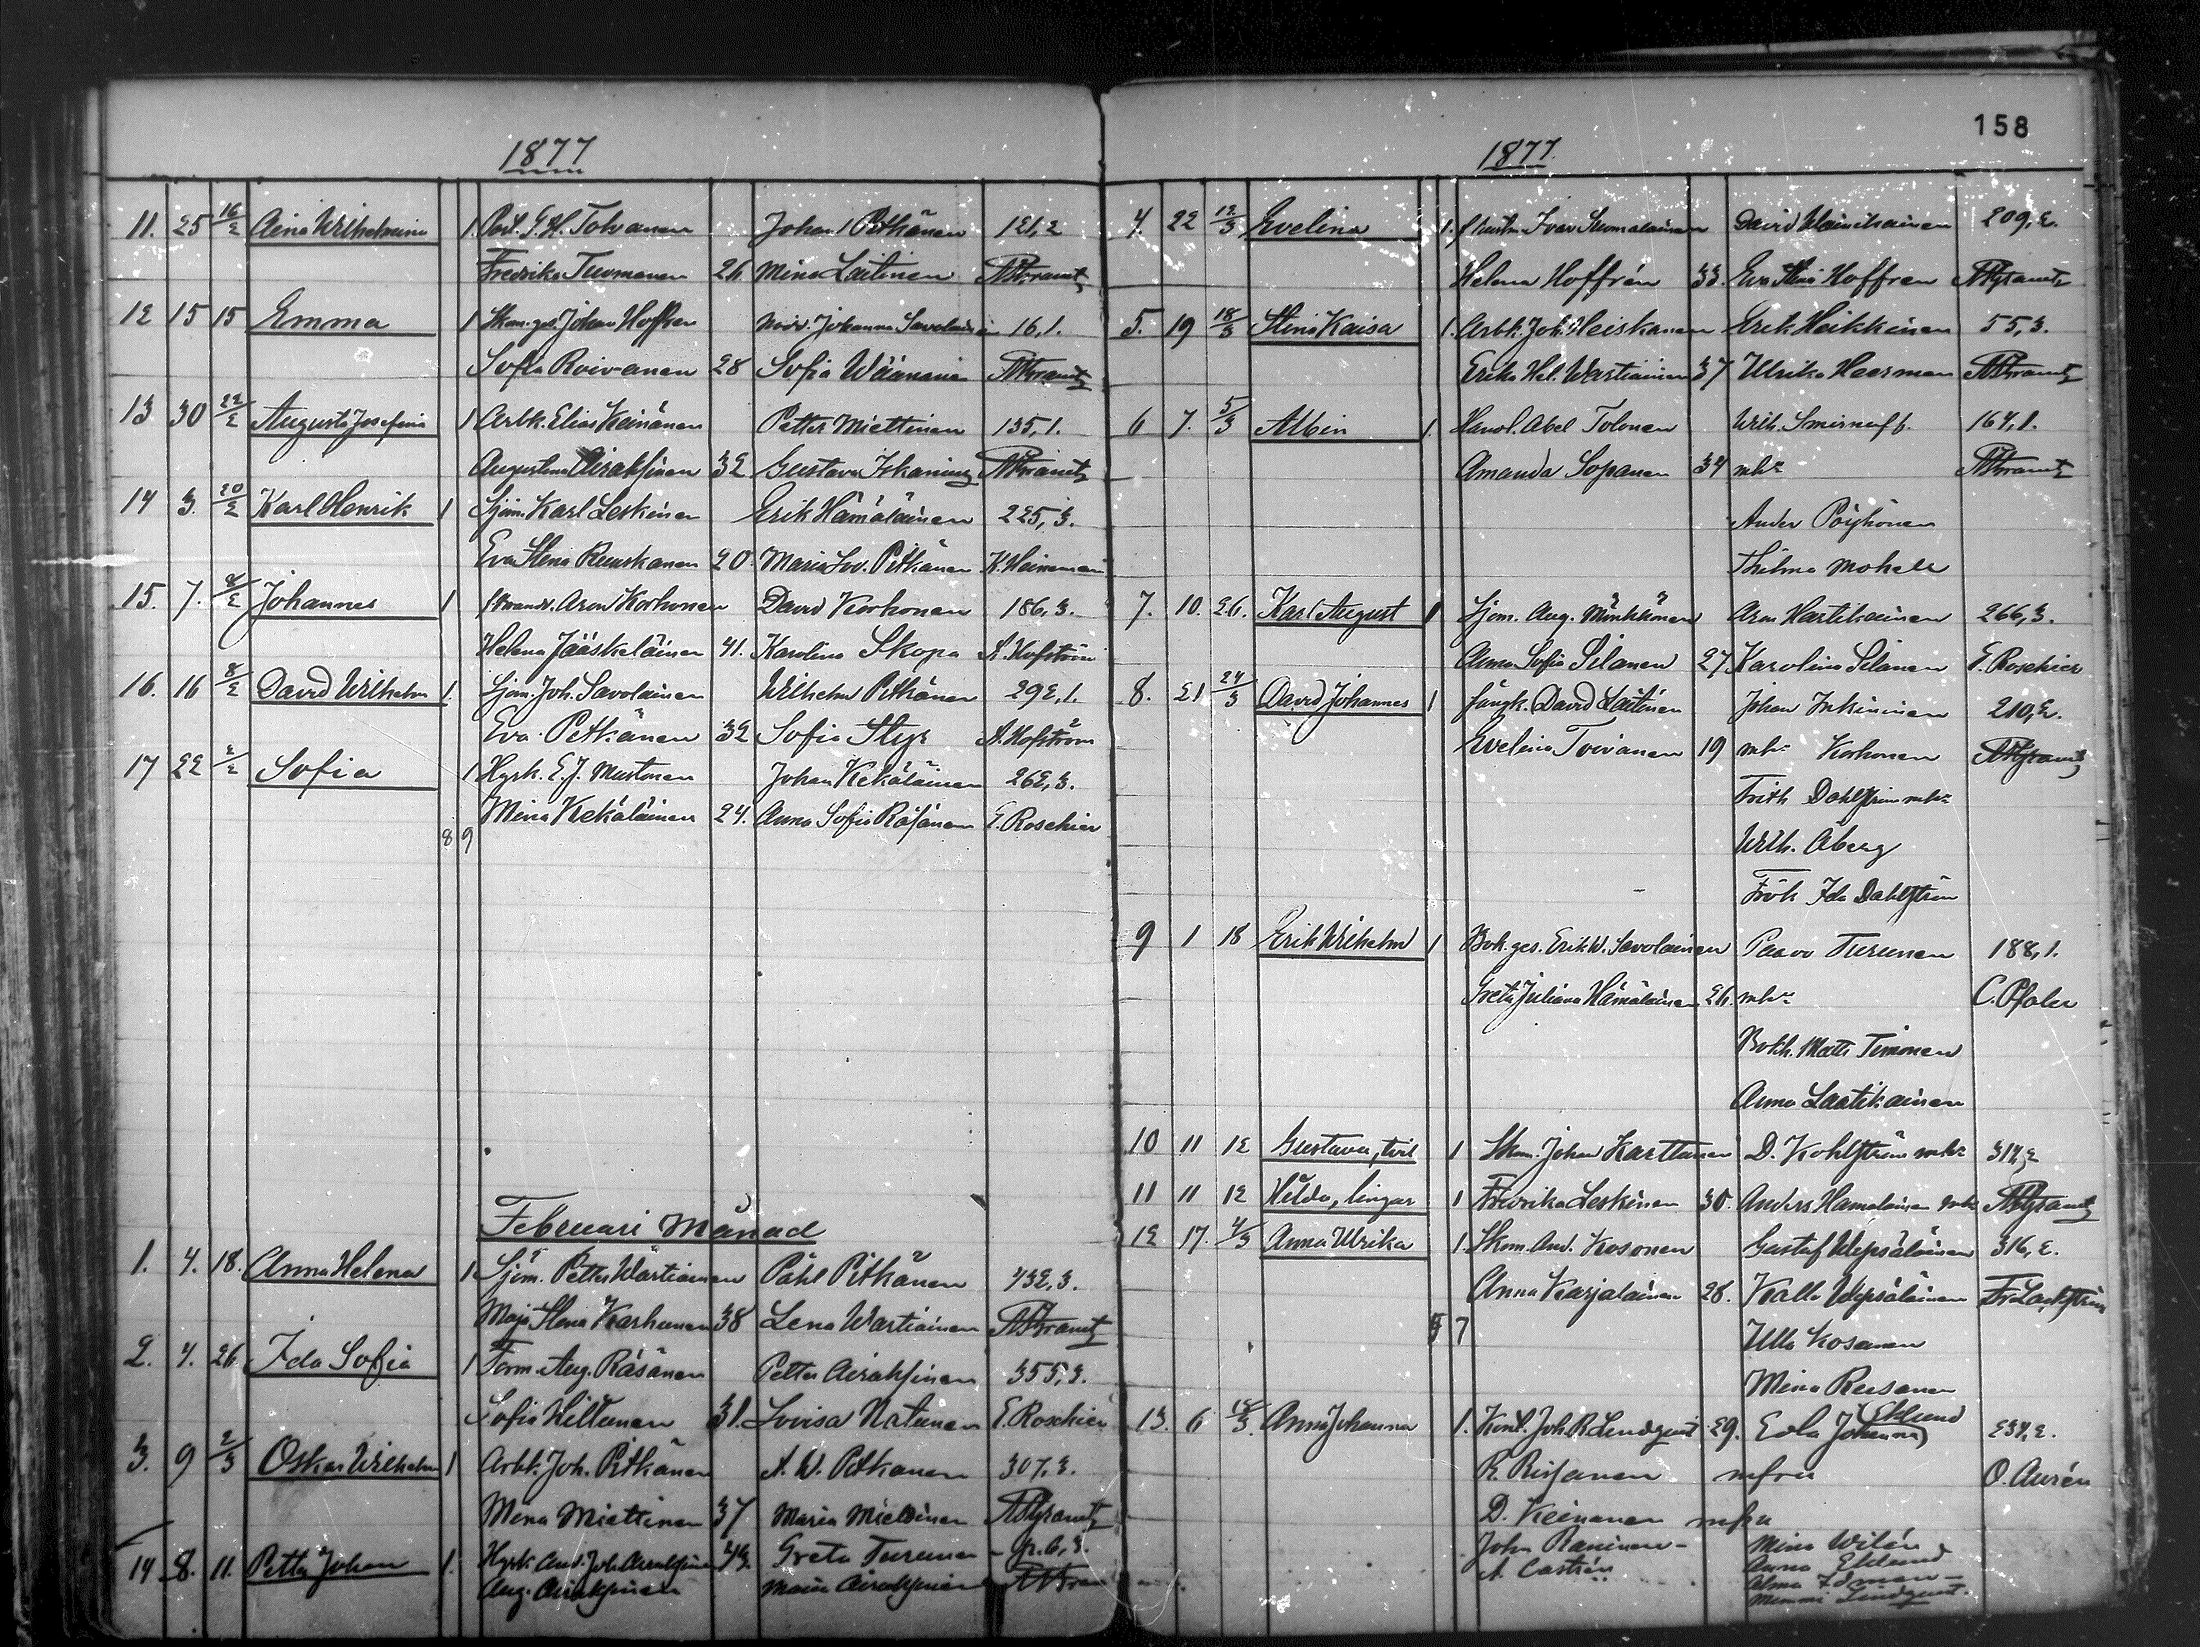 1877
11. 25 16/2 Aina Wilhelmina 1 G. H. Toivanen Johan Pitkänen 121,2
Fredrika Tuomanen 26 Mina Laitinen
12 15 15 Emma 1 Skom.ges. Johan Hoffren Johanna Savolainen 16,1.
Sofia Roivanen 28 Sofia Wäänänen
13 30 22/2 Augusta Josefina 1 Arbk. Elias Keinänen Petter Miettinen 135,1.
Augustina Airaksinen 32 Gustava
14 3. 20/2 Karl Henrik 1 Sjöm. Karl Leskinen Erik Hämäläinen 225,3.
Eva Stena Ruuskanen 20 Maria Lov. Pitkänen K. Heineman
15. 7. 4/2 Johannes 1 Aron Korhonen David Korhonen 186,3.
Helena Jääskeläinen 41. Karolina Skopa A. Hofström
16. 16 8/2 David Wilhelm 1. Sjöm. Joh. Savolainen Wilhelm Pitkänen 292,1.
Eva Pitkänen 32 Sofia Styf A. Hofström
17 22 2/2 Sofia 1 Hyrk. E. J. Mustonen Johan Kekäläinen 262,3.
Mina Kekäläinen 24. Anna Sofia Räsänen E. Roschier
8 9
Februari Månad
1. 4. 18. Anna Helena 1 Sjöm. Petter Wartiainen Påhl Pitkänen 432,3.
Maja Stena Karhunen 38 Lena Wartiainen
2. 4. 26 Ida Sofia 1 Form. Aug. Räsänen Petter Airaksinen 355,3.
Sofia Hiltunen 31. Lovisa Natunen E. Roschier
3. 9 2/3 Oskar Wilhelm 1 Arbk. Joh. Pitkänen A. W. Pitkänen 307,2.
Mina Miettinen 37 Maria Miettinen
14 8. 11. Petter Johan 1. Hyrk. And. Joh. Airaksinen Greta Turunen
Aug. Airaksinen Maria Airaksinen
158
1877.
4. 22 12/3 Evelina 1. Ivar Suomalainen David Wainikainen 209,2.
Helena Hoffrén 33. Eva Stina Hoffren
5. 19 18/3 Stina Kaisa 1. Arbk. Joh. Heiskanen Erik Heikkinen 55,3.
Erika Hel. Wartiainen 37 Ulrika Haerman
6 7. 5/3 Albin 1. Handl. Abel Tolonen Wilh. Smirnoff. 164,1.
Amanda Sopanen 34 mhu
Ander Pöyhönen
Thilma
7. 10. 26. Karl August 1 Sjöm. Aug. Mönkkönen Aron Hartikainen 266,3.
Anna Sofia Silanen 27 Karolina Silanen E. Roschier
8. 21 24/3 David Johannes 1 fångk. David Laitinen Johan Inkininen 210,2.
Evelina Toivanen 19 mhu Korhonen
Frith Dahlström mhu
Wilh. Åberg
Frök Ida Dahlström
9 1 18 Erik Wilhelm 1 Bok.ges. Erik W. Savolainen Paavo Turunen 188,1.
Greta Juliana Hämäläinen 26. mhu C. Pfaler
Bokh. Matts Timonen
Anna Laatikainen
10 11 12 Gustava, tvil 1 Skom. Johan Karttunen D. Kohlström mhu 314,2
11 11 12 Hilda, lingar 1 Fredrika Leskinen 30. Anders Hämäläinen mhu
12 17. 4/3 Anna Ulrika 1. Skom. And. Kosonen Gustaf Wepsäläinen 316,2.
Anna Karjalainen 28. Kalle Wepsäläinen
7 Ulla Kosonen
Mina Reesanen
13. 6 18/3. Anna Johanna 1. Joh. R. Lindqvist 29. Edla Johanna Eklund 234,2.
R. Rissanen mfru O. Aurén
D. Keinänen mfru
John Räninen Mina Wilén
A. Castrén Anna Eklund
Alma
Mimmi Lindqvist.